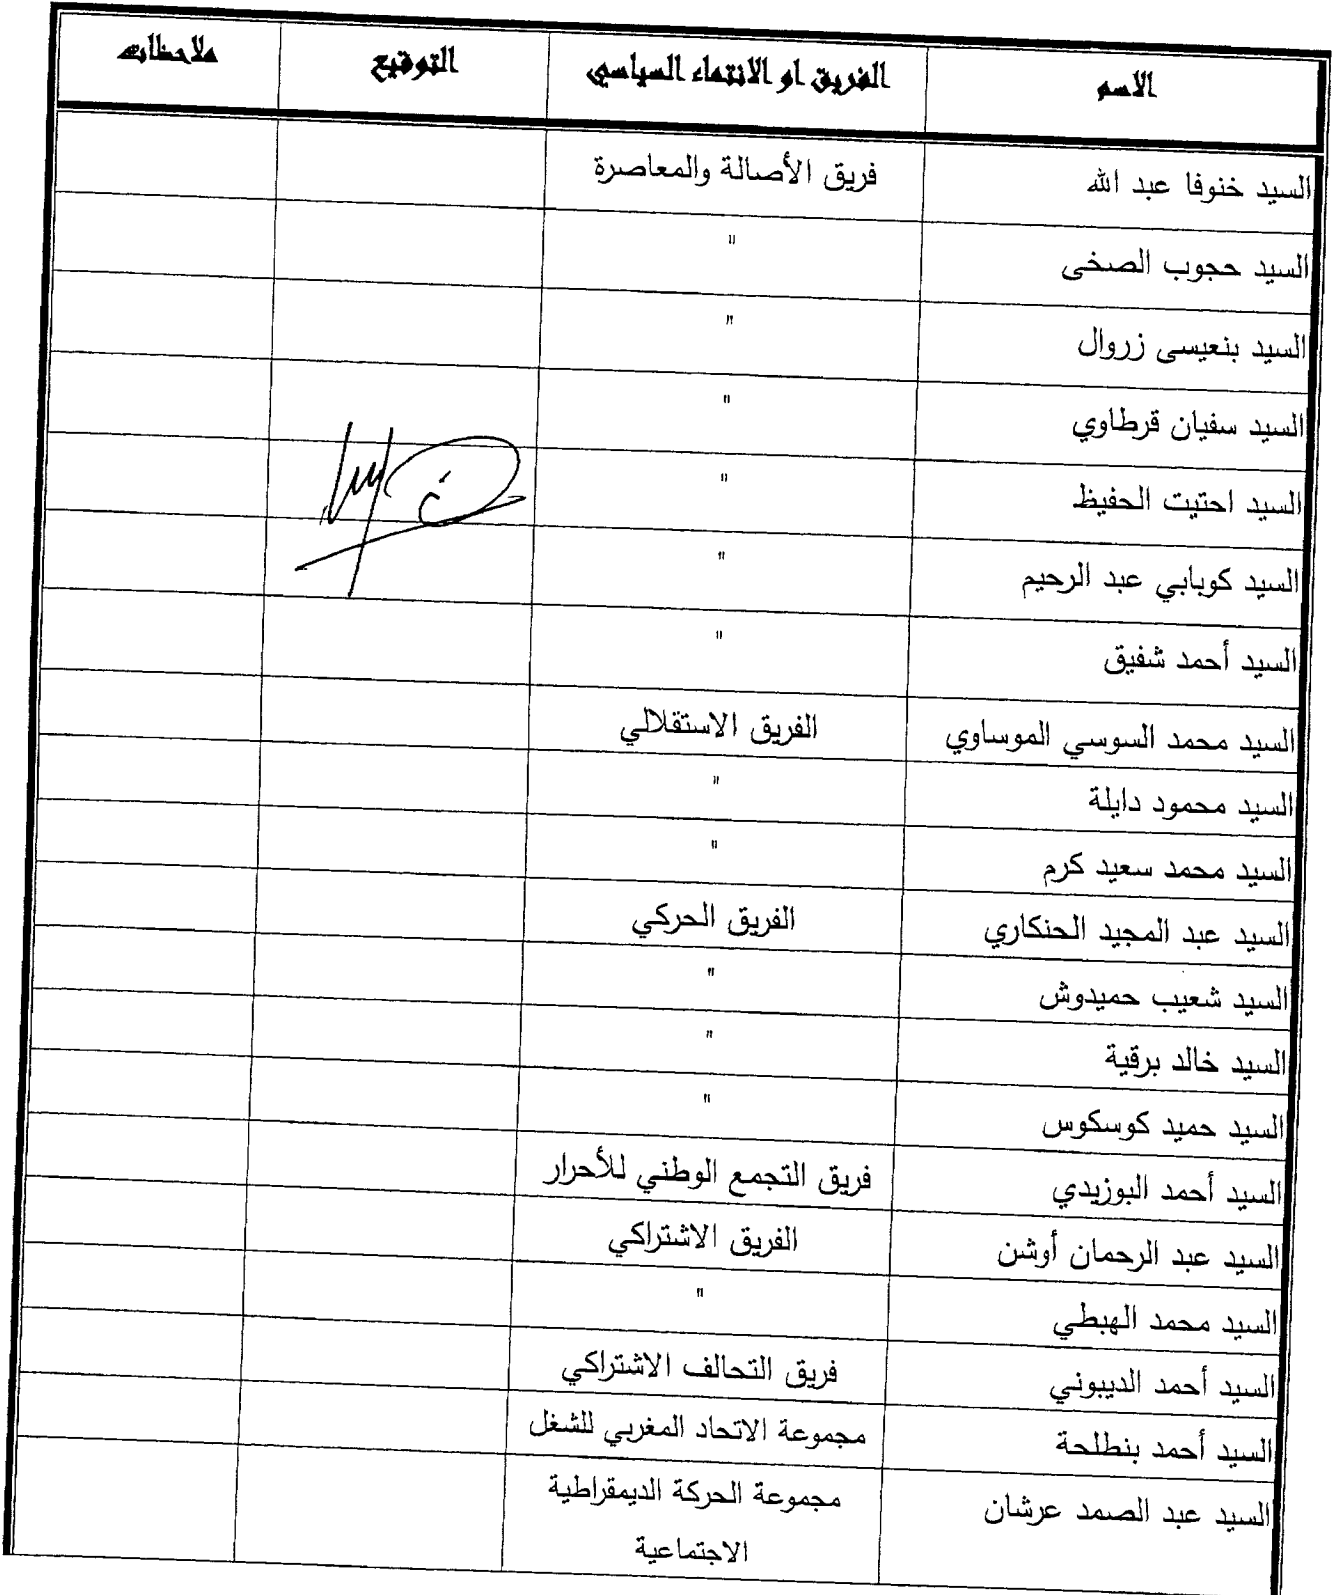 الاسم الفريق او الانتماء السياسي التوقيع ملاحظات
السيد خنوفا عبد الله فريق الأصالة والمعاصرة
السيد حجوب الصخى "
السيد بنعيسى زروال "
السيد سفيان قرطاوي "
السيد احتيت الحفيظ "
السيد كوبابي عبد الرحيم "
السيد أحمد شفيق "
السيد محمد السوسي الموساوي الفريق الاستقلالي
السيد محمود دايلة "
السيد محمد سعيد كرم "
السيد عبد المجيد الحنكاري الفريق الحركي
السيد شعيب حميدوش "
السيد خالد برقية "
السيد حميد كوسكوس "
السيد أحمد البوزيدي فريق التجمع الوطني للأحرار
السيد عبد الرحمان أوشن الفريق الاشتراكي
السيد محمد الهبطي "
السيد أحمد الديبوني فريق التحالف الاشتراكي
السيد أحمد بنطلحة مجموعة الاتحاد المغربي للشغل
السيد عبد الصمد عرشان مجموعة الحركة الديمقراطية
الاجتماعية